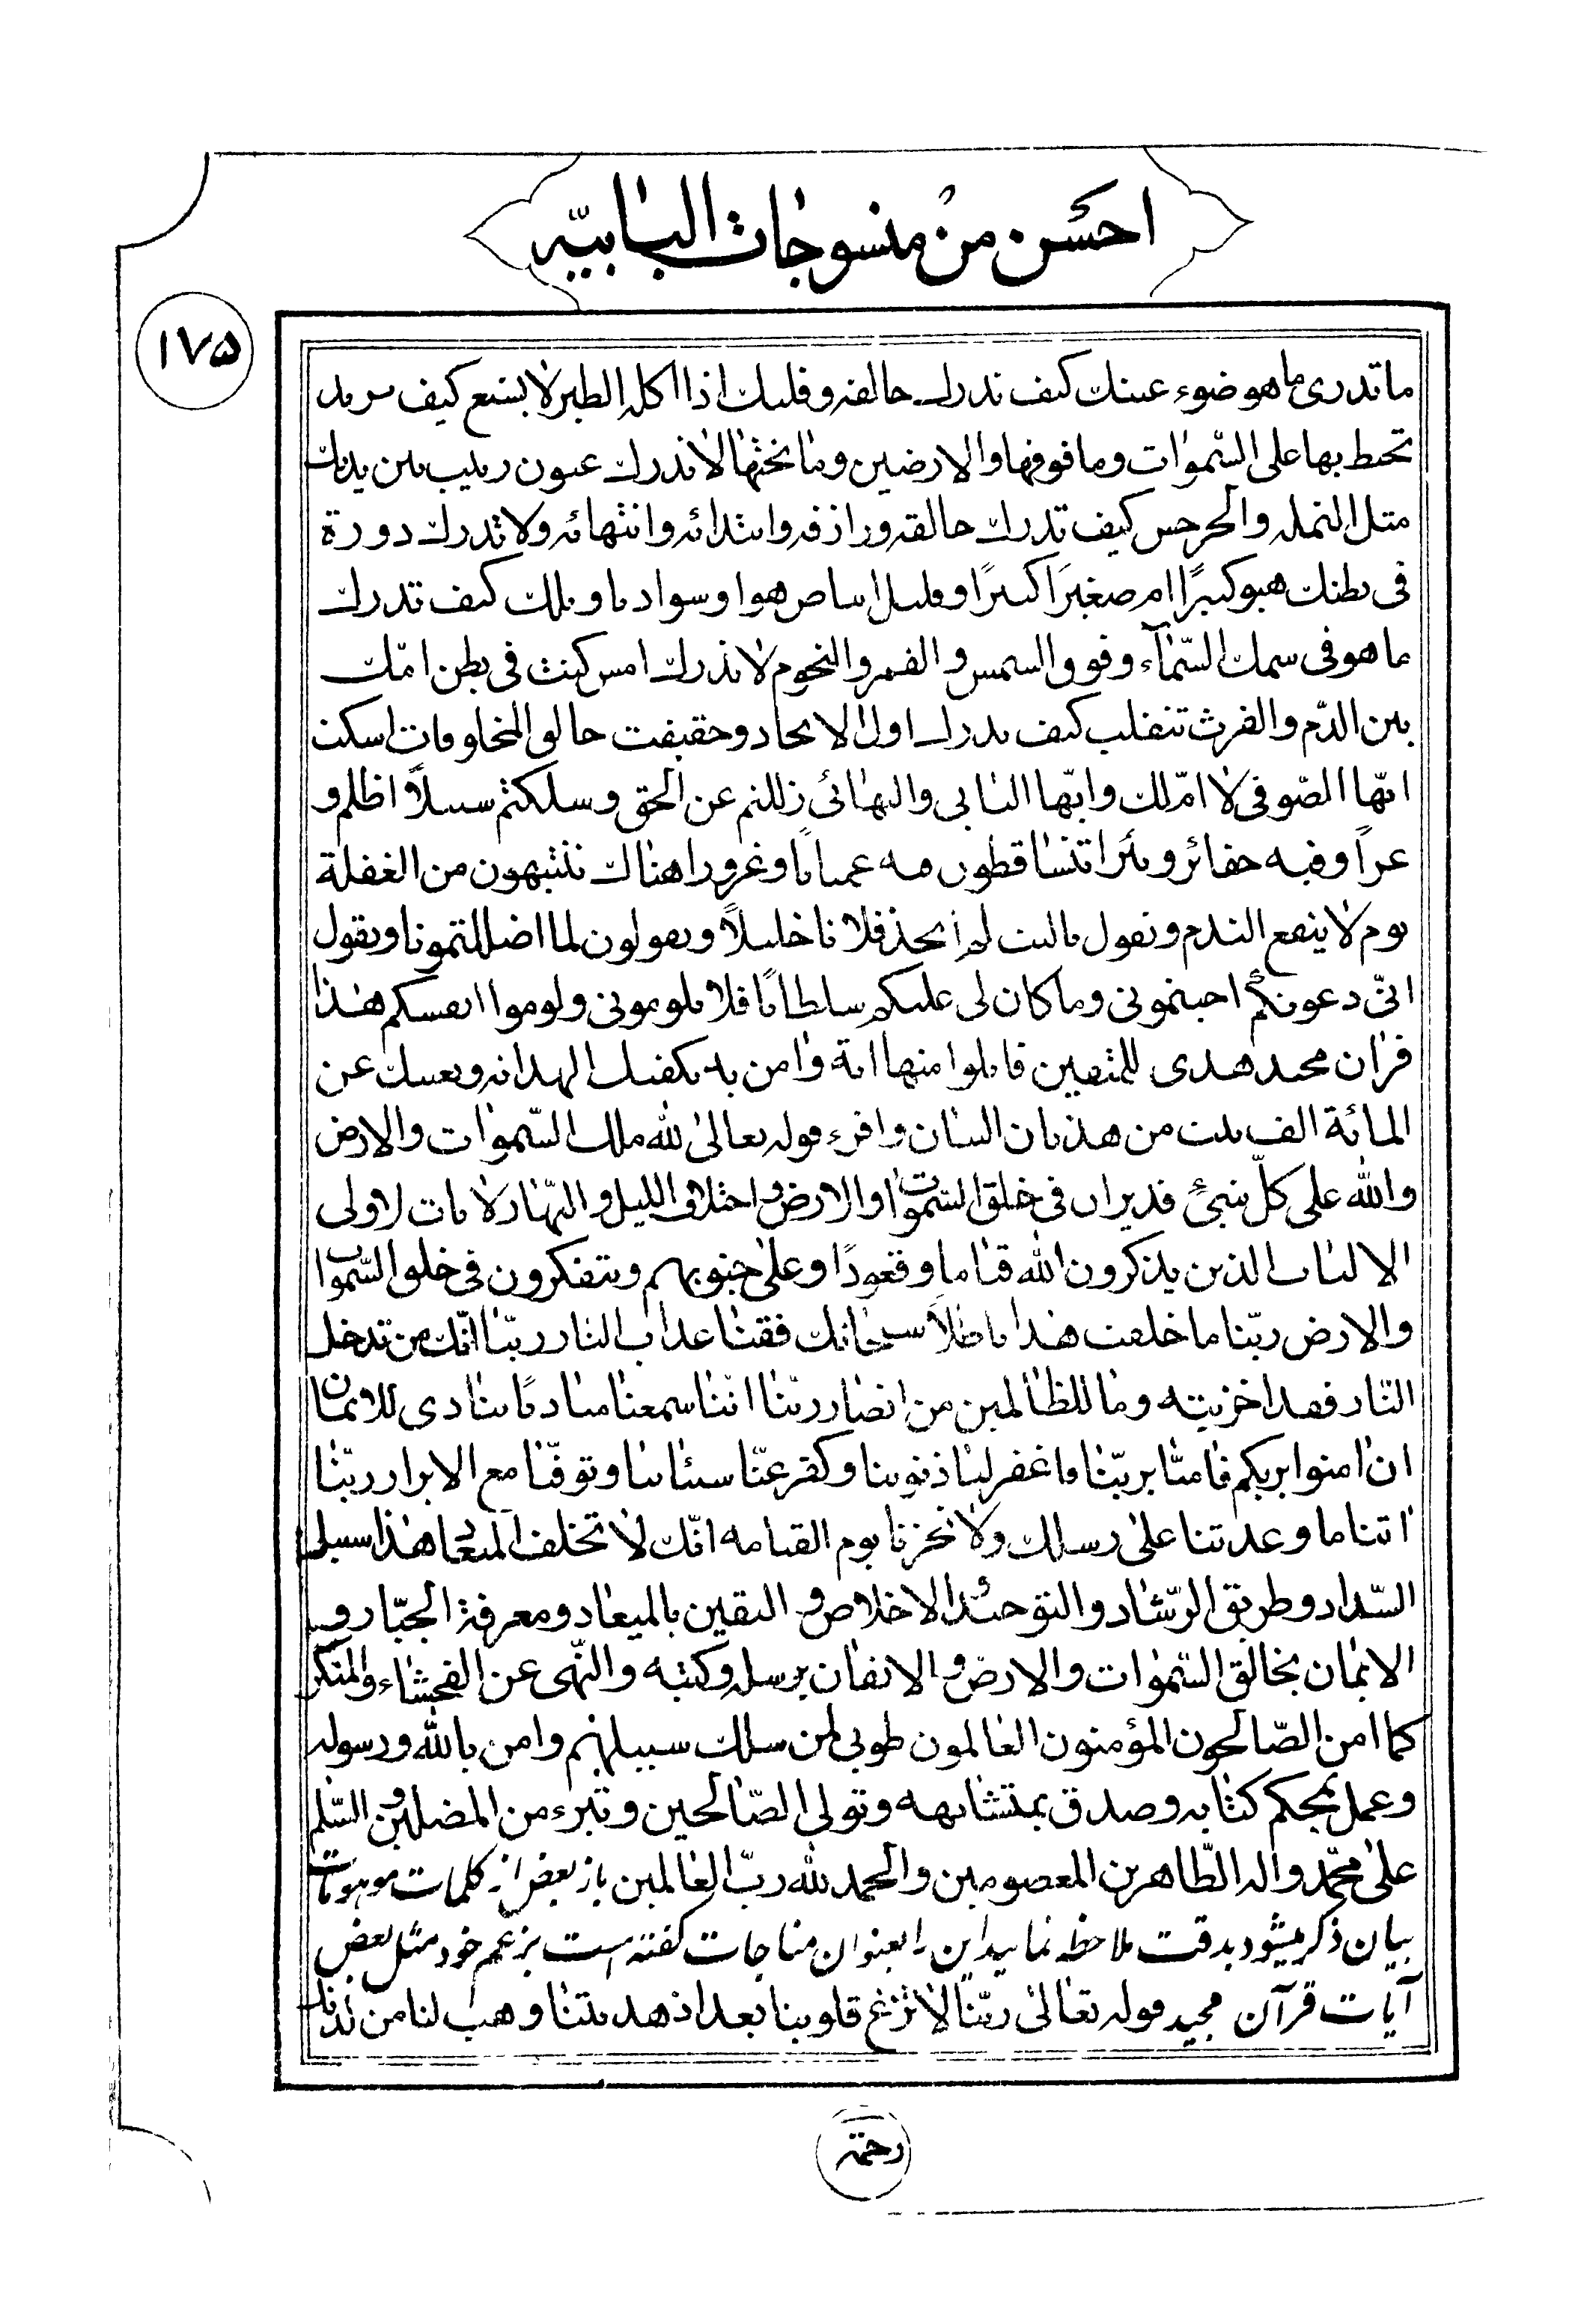 احسن من منسوجات البابیّه
۱۷۵
ما تدری ما هو ضوء عینك کیف تدرك خالقه و قلبك اذا اکله الطیر لا یشبع کیف ترید
تحیط بها علی السّمٰوات وما فوقها والارضین وما تحتها لا تدرك عیون ربیب بین یدیك
مثل النمله والجرجس کیف تدرك خالقه ورازقه وابتدائه وانتهائه ولا تدرك دورة
فی بطنك هو کبیرًا ام صغیرًا کثیرًا او قلیل ابیاض هو او سواد یا ویلك کیف تدرك
ما هو فی سمك السّمآء وفوق الشمس والقمر والنجوم لا تدرك امس کنت فی بطن امّك
بین الدّم والفرث تنقلب کیف تدرك اول الایجاد وحقیقت خالق المخلوقات اسکت
ایّها الصّوفی لا امّ لك وایّها البابی والبهائی زللتم عن الحق وسلکتم سبیلاً اظلم و
وفیه حفائر وبئرا تتساقطون فیه عمیانا وغرورا هناك تنتبهون من الغفلة
یوم لا ینفع الندم وتقول یا لیت لم اتخذ فلانا خلیلاً ویقولون لما اضللتمونا ویقول
انّی دعوتکم اجبتمونی وما کان لی علیکم سلطانًا فلا تلومونی ولوموا انفسکم هٰذا
قرٰان محمد هدی للمتقین فاتلوا منها ایة وٰامن به یکفیك الهدایه ویغنیك عن
المائة الف بیت من هذیان البیان واقرء قوله تعالیٰ لله ملك السّمٰوات والارض
والله علی کلّ شیئٍ قدیر ان فی خلق السّمٰوات والارض واختلاف اللیل والنّهار لاٰیات لاولی
الالباب الذین یذکرون الله قیاما وقعودًا وعلیٰ جنوبهم ویتفکرون فی خلق السّمٰوات
والارض ربّنا ما خلقت هٰذا باطلاً سبحانك فقنا عذاب النار ربّنا انّك من تدخل
النّار فقد اخزیته وما للظّالمین من انصار ربّنا انّنا سمعنا منادیًا ینادی للایمان
ان اٰمنوا بربکم فاٰمنّا بربّنا فاغفر لنا ذنوبنا وکفر عنّا سیئاتنا وتوفّنا مع الابرار ربّنا
اٰتنا ما وعدتنا علیٰ رسلك ولا تخزنا یوم القیامه انّك لا تخلف المیعاد هٰذا سبیل
السّداد وطریق الرّشاد والتوحید الاخلاص و الیقین بالمیعاد ومعرفة الجبّار و
الایمان بخالق السّمٰوات والارض و الاتقان برسله وکتبه والنّهی عن الفحشاء والمنکر
کما اٰمن الصّالحون المؤمنون العالمون طوبی لمن سلك سبیلهم وامن بالله ورسوله
وعمل بمحکم کتابه وصدق بمتشابهه وتولی الصّالحین وتبرء من المضلین والسّلم
علیٰ محمّد واٰله الطّاهرین المعصومین والحمد لله ربّ العالمین باز بعض از کلمات موهومات
بیان ذکر میشود بدقت ملاحظه نمایید این را بعنوان مناجات گفته است بزعم خود مثل بعض
آیات قرآن مجید قوله تعالیٰ ربّنا لا تزغ قلوبنا بعد اذ هدیتنا وهب لنا من لدنك
رحمة